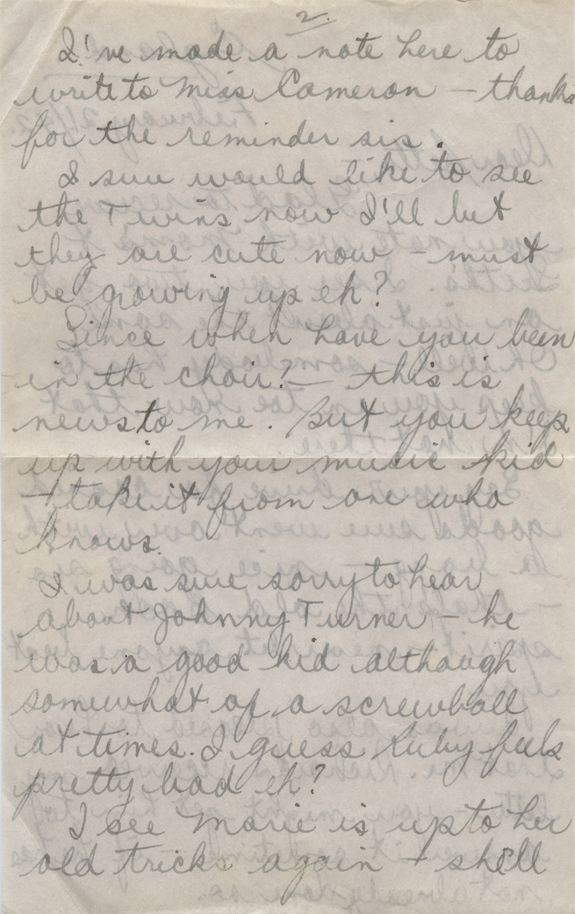 2.
I've made a note here to
write to Miss Cameron - thanks
for the reminder sis.
I sure would like to see
the Twins now I'll bet
they are cute now - must
be growing up eh?
Since when have you been
in the choir? - this is
news to me. But you keep
up with your music kid
- take it from one who
knows.
I was sure sorry to hear
about Johnny Turner - he
was a good kid although
somewhat of a screwball
at times. I guess Ruby feels
pretty bad eh?
I see Marie is up to her
old tricks again - she'll